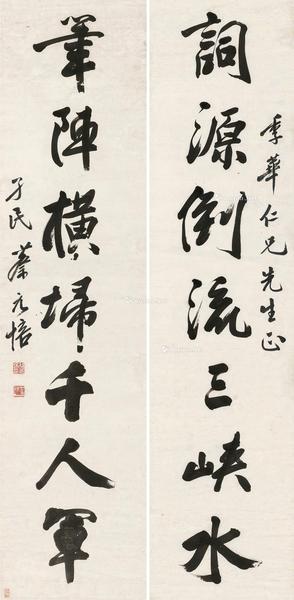 詞源倒流三峽水
季華仁兄先生正
筆陣橫埽千人軍
孑民蔡元培